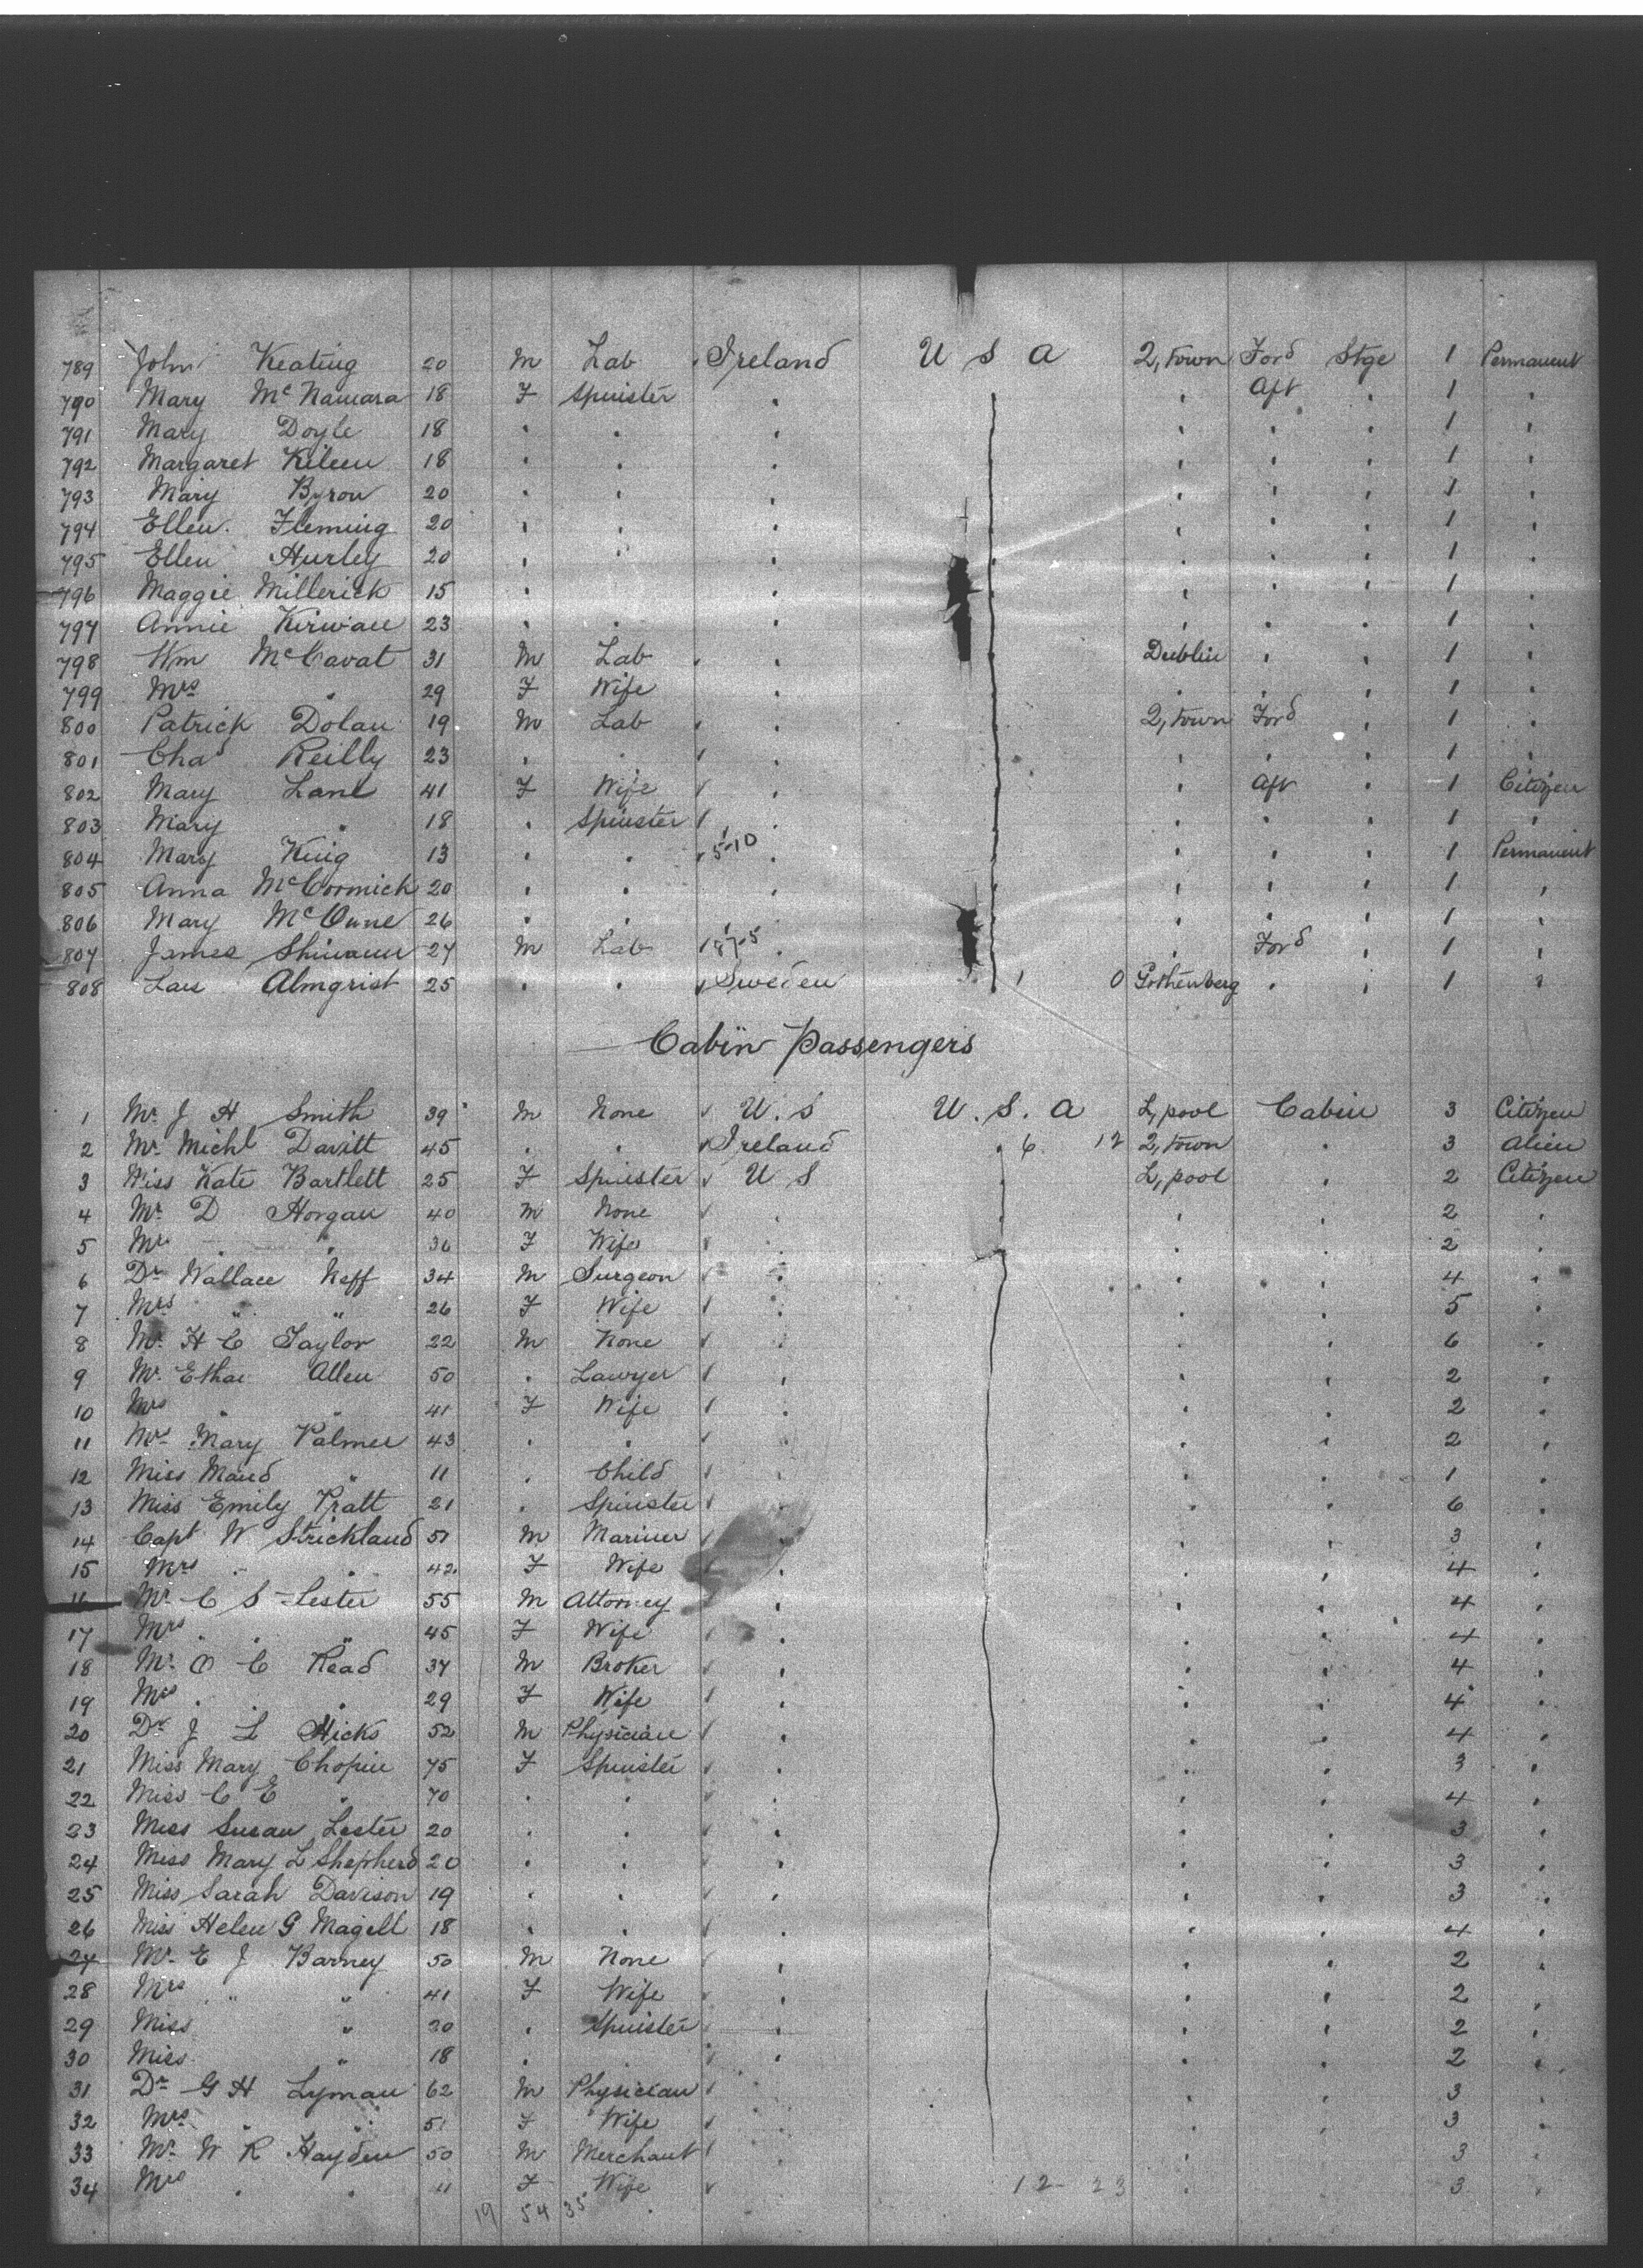 789 John Keating 20 M Lab Ireland U S A 2,town Ford Stge 1 Permanent
790 Mary McNamara 18 F Spinster " " Aft " 1 "
791 Mary Doyle 18 " " " " " " 1 "
792 Margaret Kileen 18 " " " " " " 1 "
793 Mary Byron 20 " " " " " " 1 "
794 Ellen Fleming 20 " " " " " " 1 "
795 Ellen Hurley 20 " " " " " " 1 "
796 Maggie Millerick 15 " " " " " " 1 "
797 Annie Kirwan 23 " " " " " " 1 "
798 Wm McCavat 31 M Lab " Dublin " " 1 "
799 Mrs " 29 F Wife " " " " 1 "
800 Patrick Dolan 19 M Lab " 2,town Ford " 1 "
801 Chas Reilly 23 " " " " " " 1 "
802 Mary Lane 41 F Wife " " Aft " 1 Citizen
803 Mary " 18 " Spinster " " " " 1 "
804 Mary King 13 " " 5-10 " " " " 1 Permanent
805 Anna McCormick 20 " " " " " " 1 "
806 Mary McOune 26 " " " " " " 1 "
807 James 27 M Lab " " Ford " 1 "
808 Lars Almqrist 25 " " Sweden 1 0 Gothenberg " " 1 "
Cabin Passengers
1 Mr J H Smith 39 M None U.S U.S.A L,pool Cabin 3 Citizen
2 Mr Michl Davitt 45 " " Ireland " 6 12 2,town " 3 Alien
3 Miss Kate Bartlett 25 F Spinster U S L,pool " 2 Citizen
4 Mr D Horgan 40 M None " " " 2 "
5 Mrs " " 36 F Wife " " " 2 "
6 Dr Wallace Neff 34 M Surgeon " " " 4 "
7 Mrs " " 26 F Wife " " " 5 "
8 Mr H C Taylor 22 M None " " " 6 "
9 Mr Ethan Allen 50 " Lawyer " " " 2 "
10 Mrs " " 41 F Wife " " " 2 "
11 Mrs Mary Palmer 43 " " " " " 2 "
12 Miss Maud " 11 " Child " " " 1 "
13 Miss Emily Pratt 21 " Spinster " " " 6 "
14 Capt W Strickland 51 M Mariner " " " 3 "
15 Mrs " " 42 F Wife " " " 4 "
16 Mr C S Lester 55 M Attorney " " " 4 "
17 Mrs " " " 45 F Wife " " " 4 "
18 Mr O C Read 37 M Broker " " " 4 "
19 Mrs " " " 29 F Wife " " " 4 "
20 Dr J L Hicks 52 M Physician " " " 4 "
21 Miss Mary Chopin 75 F Spinster " " " 3 "
22 Miss C E " 70 " " " " " 4 "
23 Miss Susan Lester 20 " " " " " 3 "
24 Miss Mary L Shepherd 20 " " " " " 3 "
25 Miss Sarah Davison 19 " " " " " 3 "
26 Miss Helen G Magill 18 " " " " " 4 "
27 Mr E J Barney 50 M None " " " 2 "
28 Mrs " " 41 F Wife " " " 2 "
29 Miss " 20 " Spinster " " " 2 "
30 Miss " 18 " " " " " 2 "
31 Dr G H Lyman 62 M Physician " " " 3 "
32 Mrs " " 51 F Wife " " " 3 "
33 Mr W R Hayden 50 M Merchant " " " 3 "
34 Mrs " " " F Wife " 12-23 " " 3 "
19 54 35